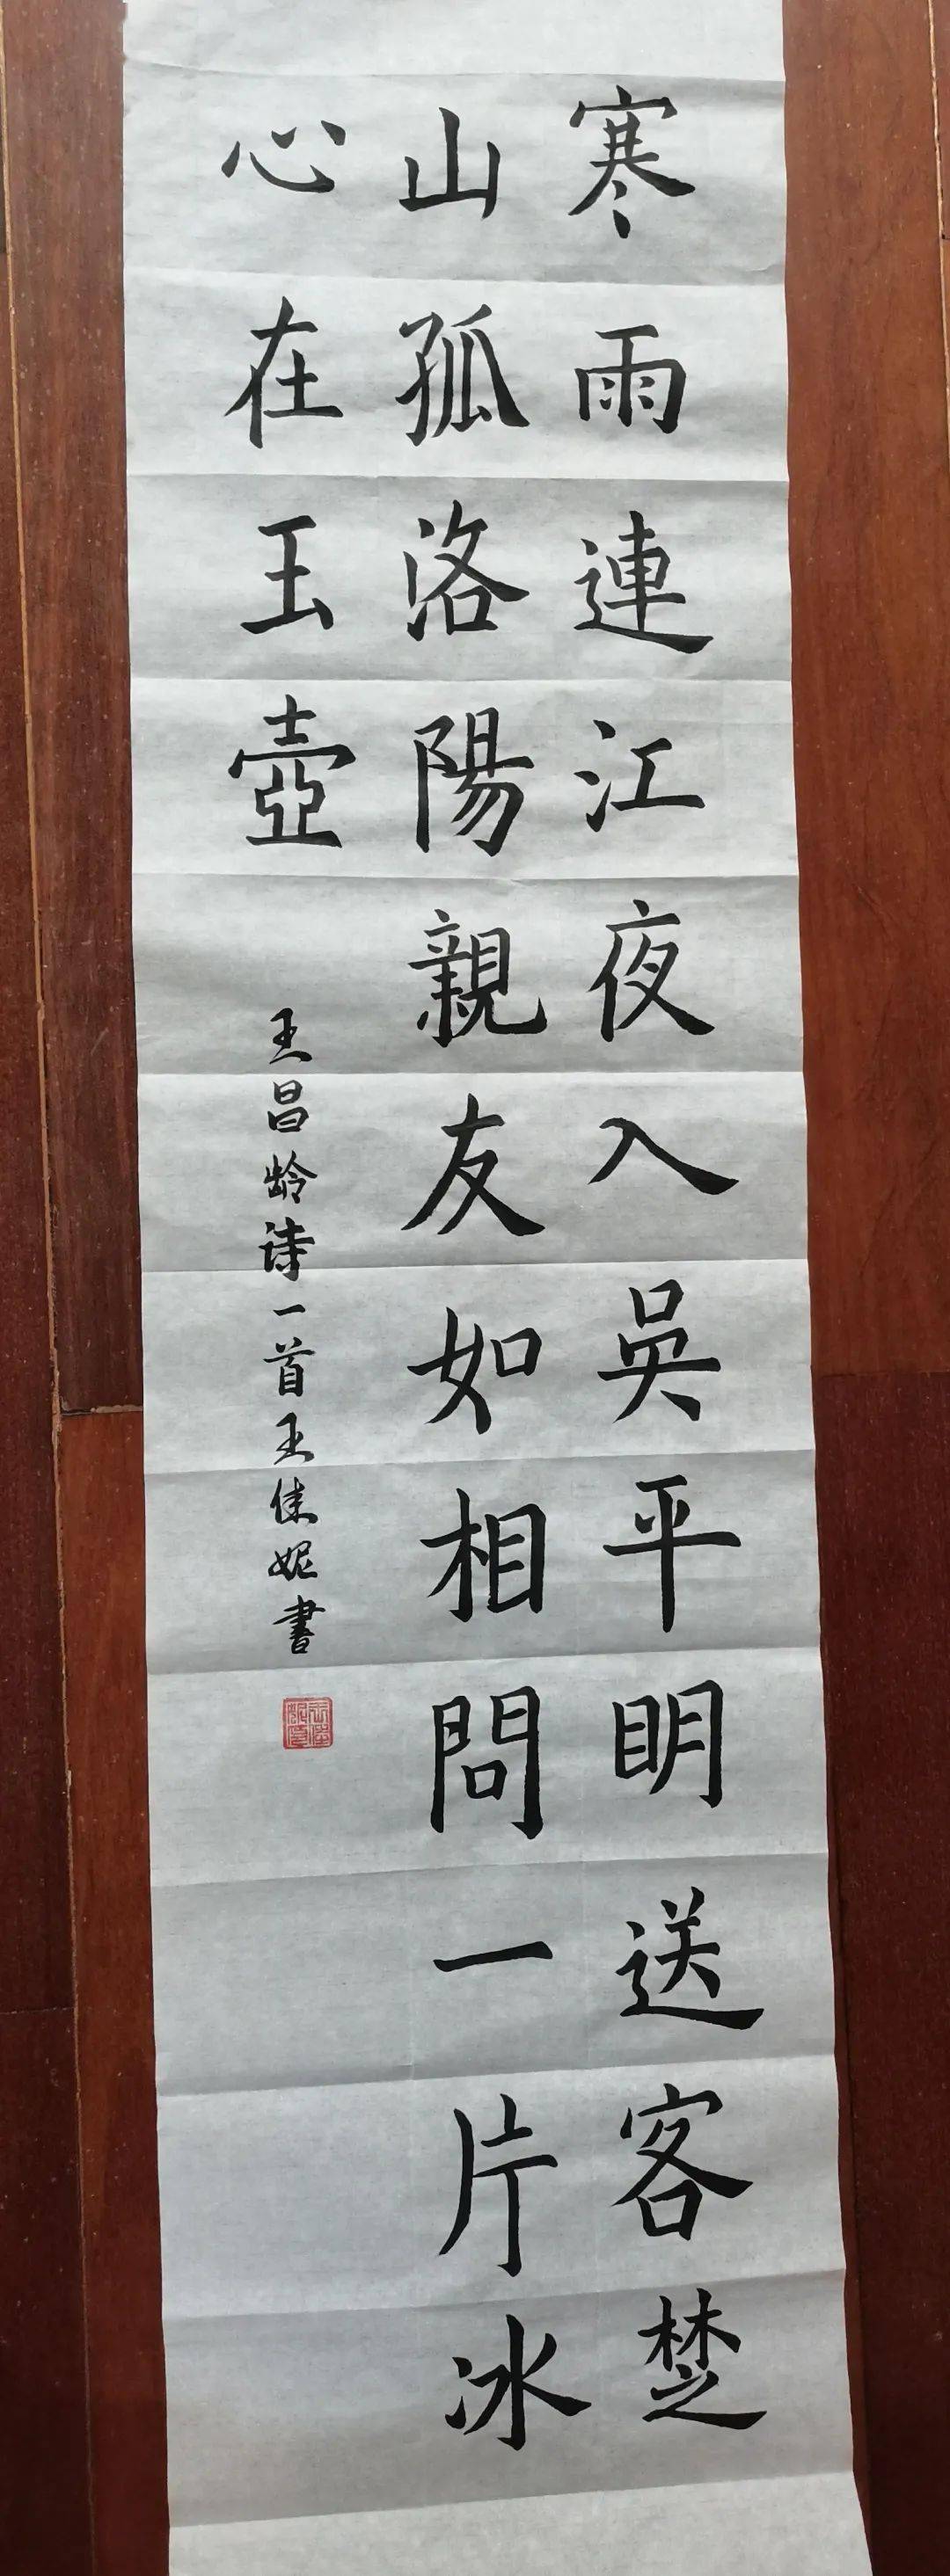 寒雨連江夜入吳平明送客楚
山孤洛陽親友如相問一片冰
心在玉壺
王昌龄诗一首王佳妮書